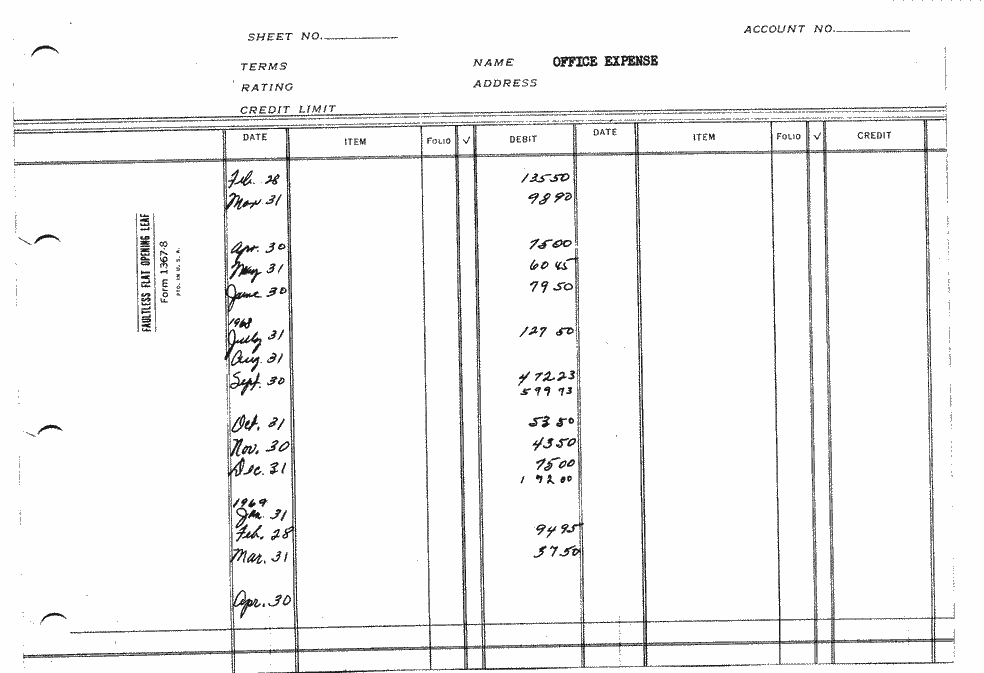 SHEET NO.
ACCOUNT NO.
TERMS
NAME OFFICE EXPENSE
RATING
ADDRESS
CREDIT LIMIT
DATE ITEM FOLIO √ DEBIT DATE ITEM FOLIO √ CREDIT
Feb. 28 135 50
Mar. 31 98 90
FAULTLESS FLAT OPENING LEAF
Form 1367-8
PTD. IN U. S. A.
Apr. 30 75 00
May 31 60 45
June 30 79 50
1968
July 31 127 50
Aug. 31
Sept. 30 472.23
599 73
Oct. 31 53 50
Nov. 30 43 50
Dec. 31 75 00
1 72 00
1969
Jan. 31
Feb. 28 94 95
Mar. 31 37 50
Apr. 30